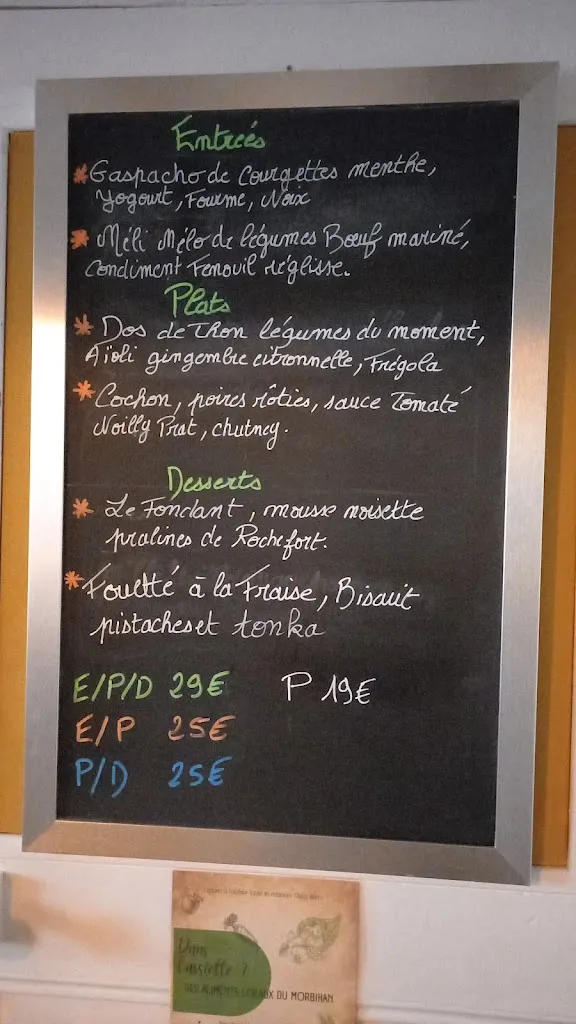 Entrées
* Gaspacho de Courgettes menthe,
Yogourt, Fourme, Noix
* Méli Mélo de légumes Bœuf mariné,
Condiment Fenouil réglisse.
Plats
* Dos de Thon légumes du moment,
Aïoli gingembre citronnelle, Frégola
* Cochon, poires rôties, sauce Tomate
Noilly Prat, chutney.
Desserts
* Le Fondant, mousse noisette
pralines de Rochefort.
* Fouetté à la Fraise, Biscuit
pistaches et tonka
E/P/D 29€ P 19€
E/P 25€
P/D 25€
Dans
l'assiette ?
DES ALIMENTS LOCAUX DU MORBIHAN